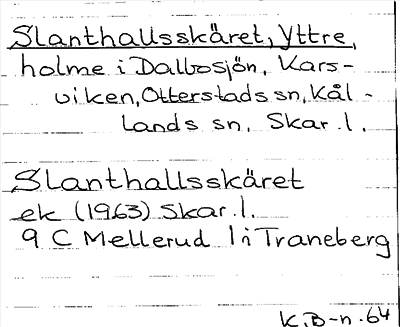 Slanthallsskäret, Yttre,
holme i Dalbosjön, Kars-
viken, Otterstads sn, Kål-
lands sn, Skar.l.
Slanthallsskäret
ek (1963) Skar.l.
9 C Mellerud 1 i Traneberg
K.B-n.64